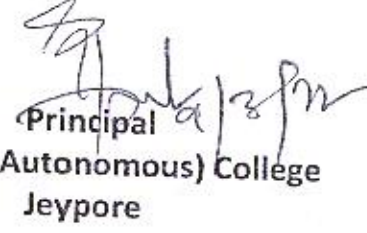 Principal
Autonomous) College
Jeypore